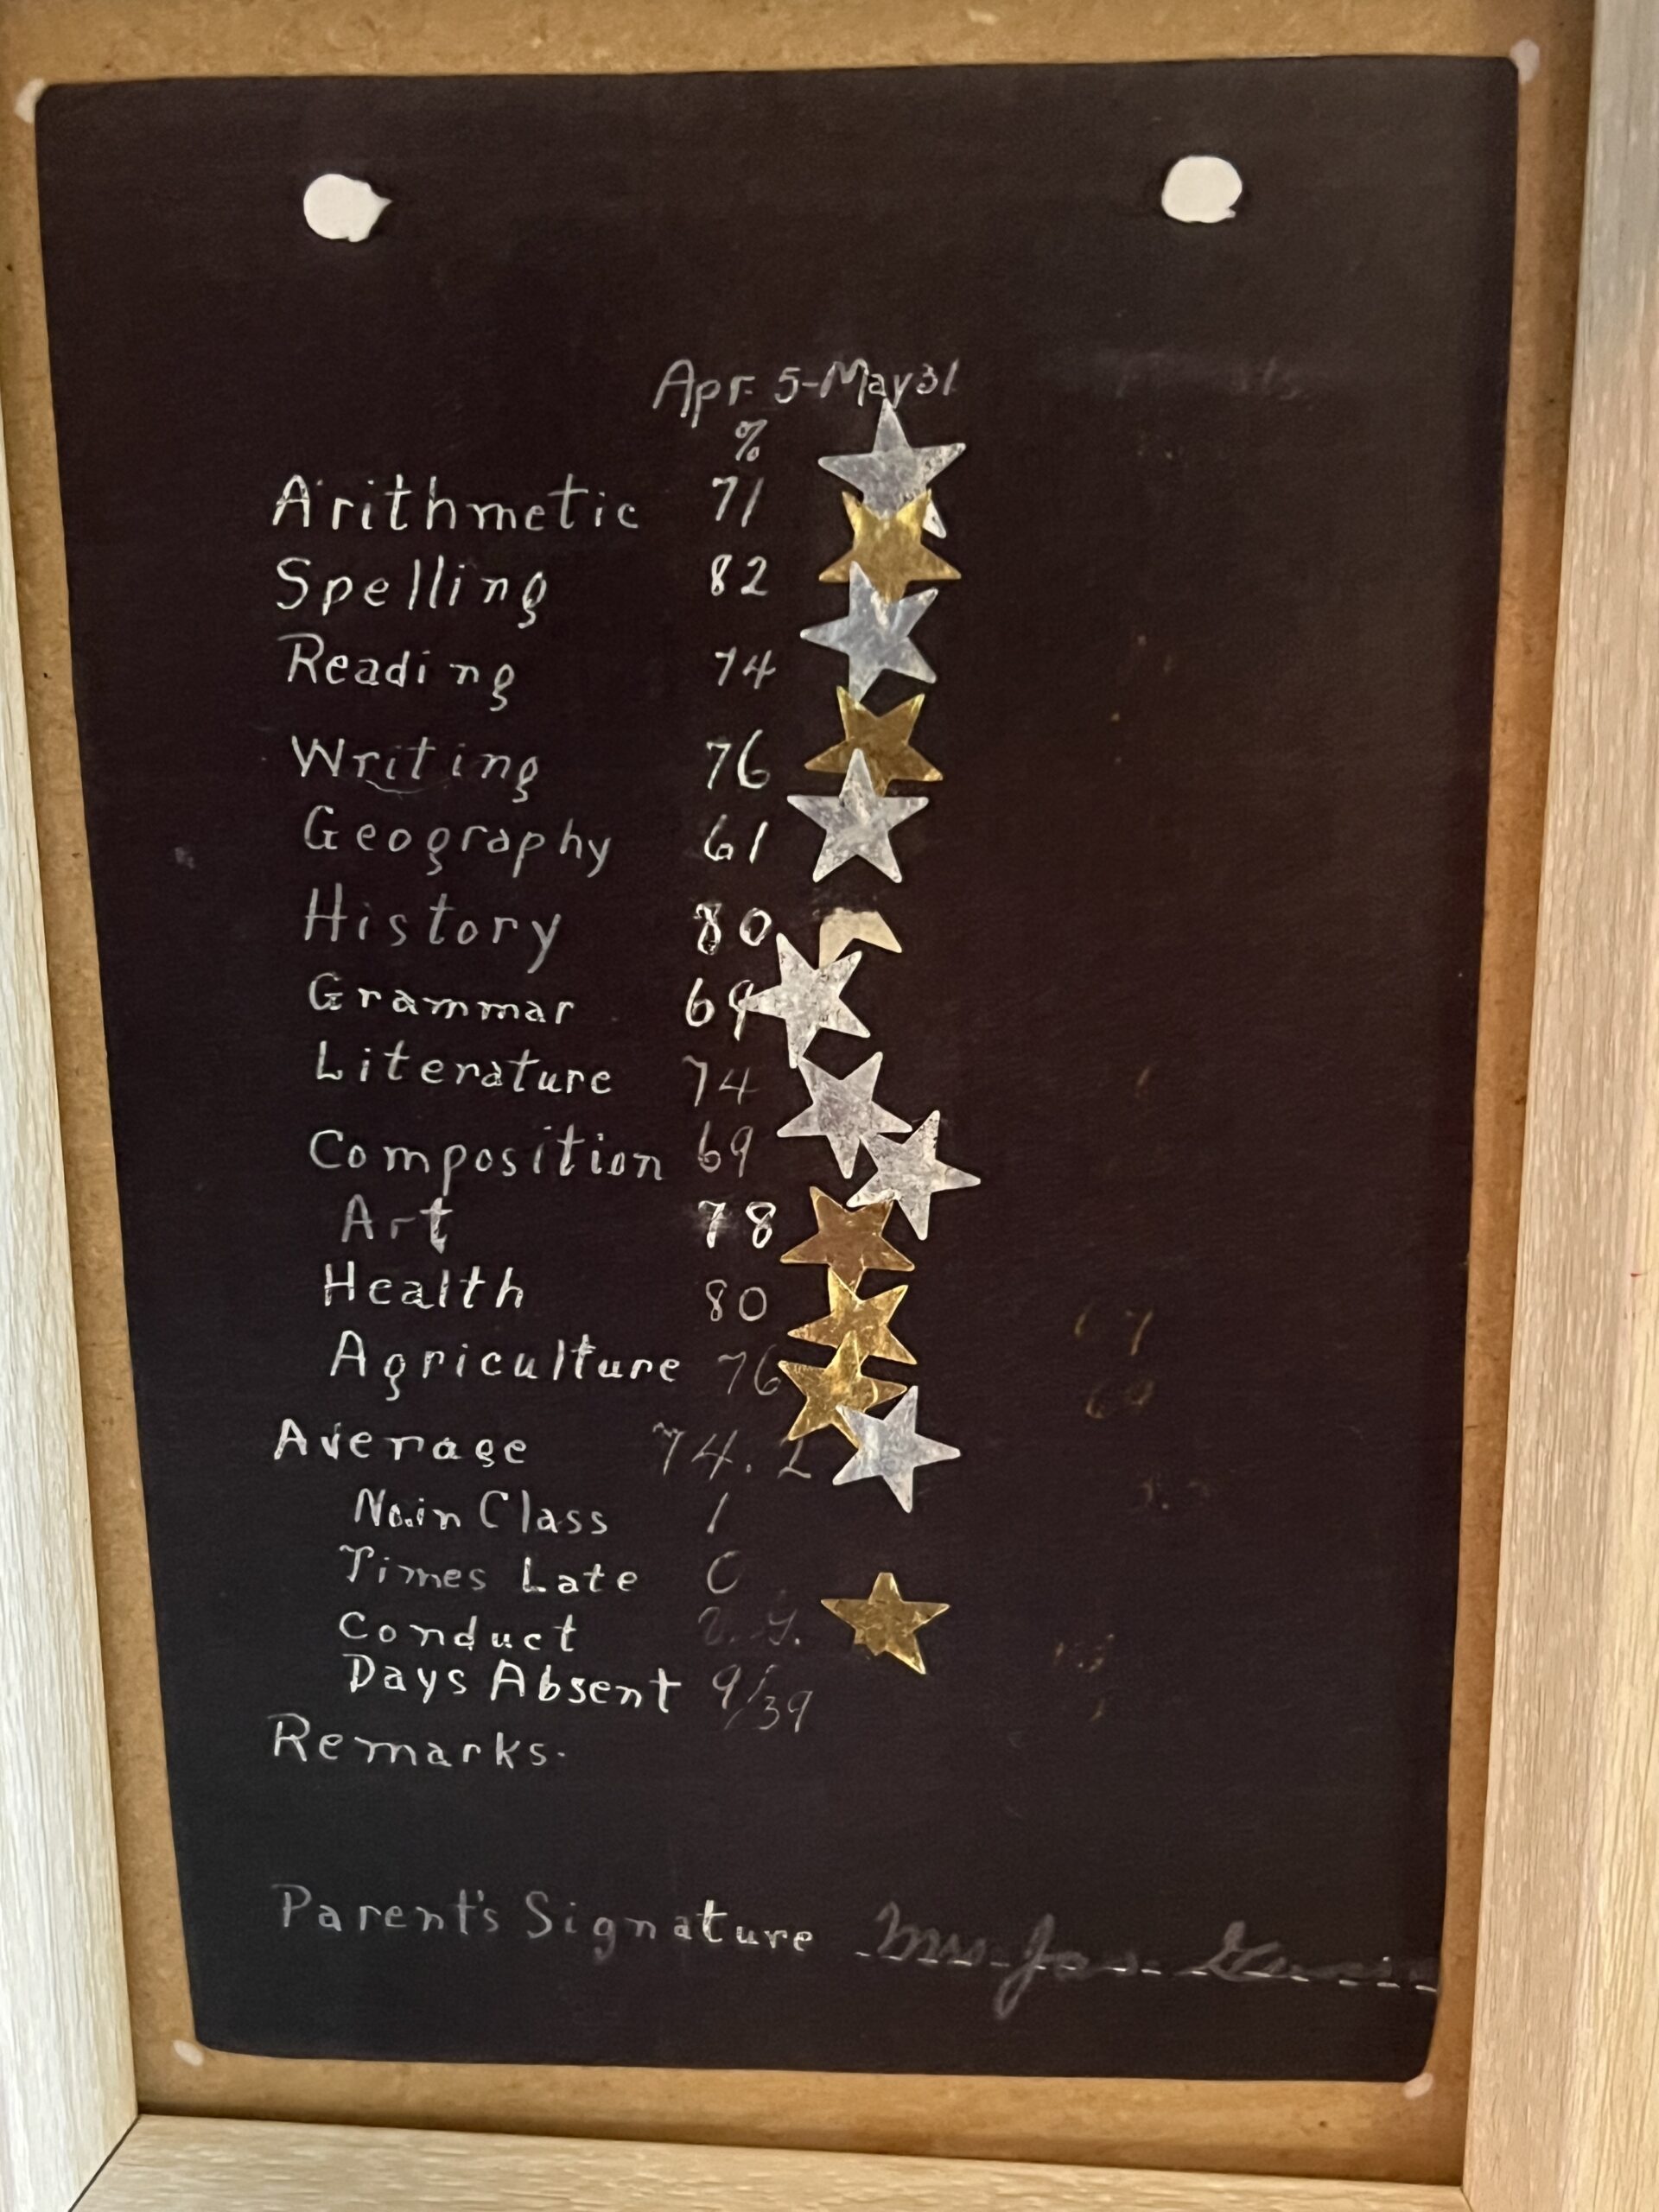 Apr. 5-May 31
%
Arithmetic 71
Spelling 82
Reading 74
Writing 76
Geography 61
History 80
Grammar 69
Literature 74
Composition 69
Art 78
Health 80
Agriculture 76
Average 74.2
No. in Class 1
Times Late 0
Conduct V.G.
Days Absent 9/39
Remarks.
Parent's Signature Mrs. Jas.